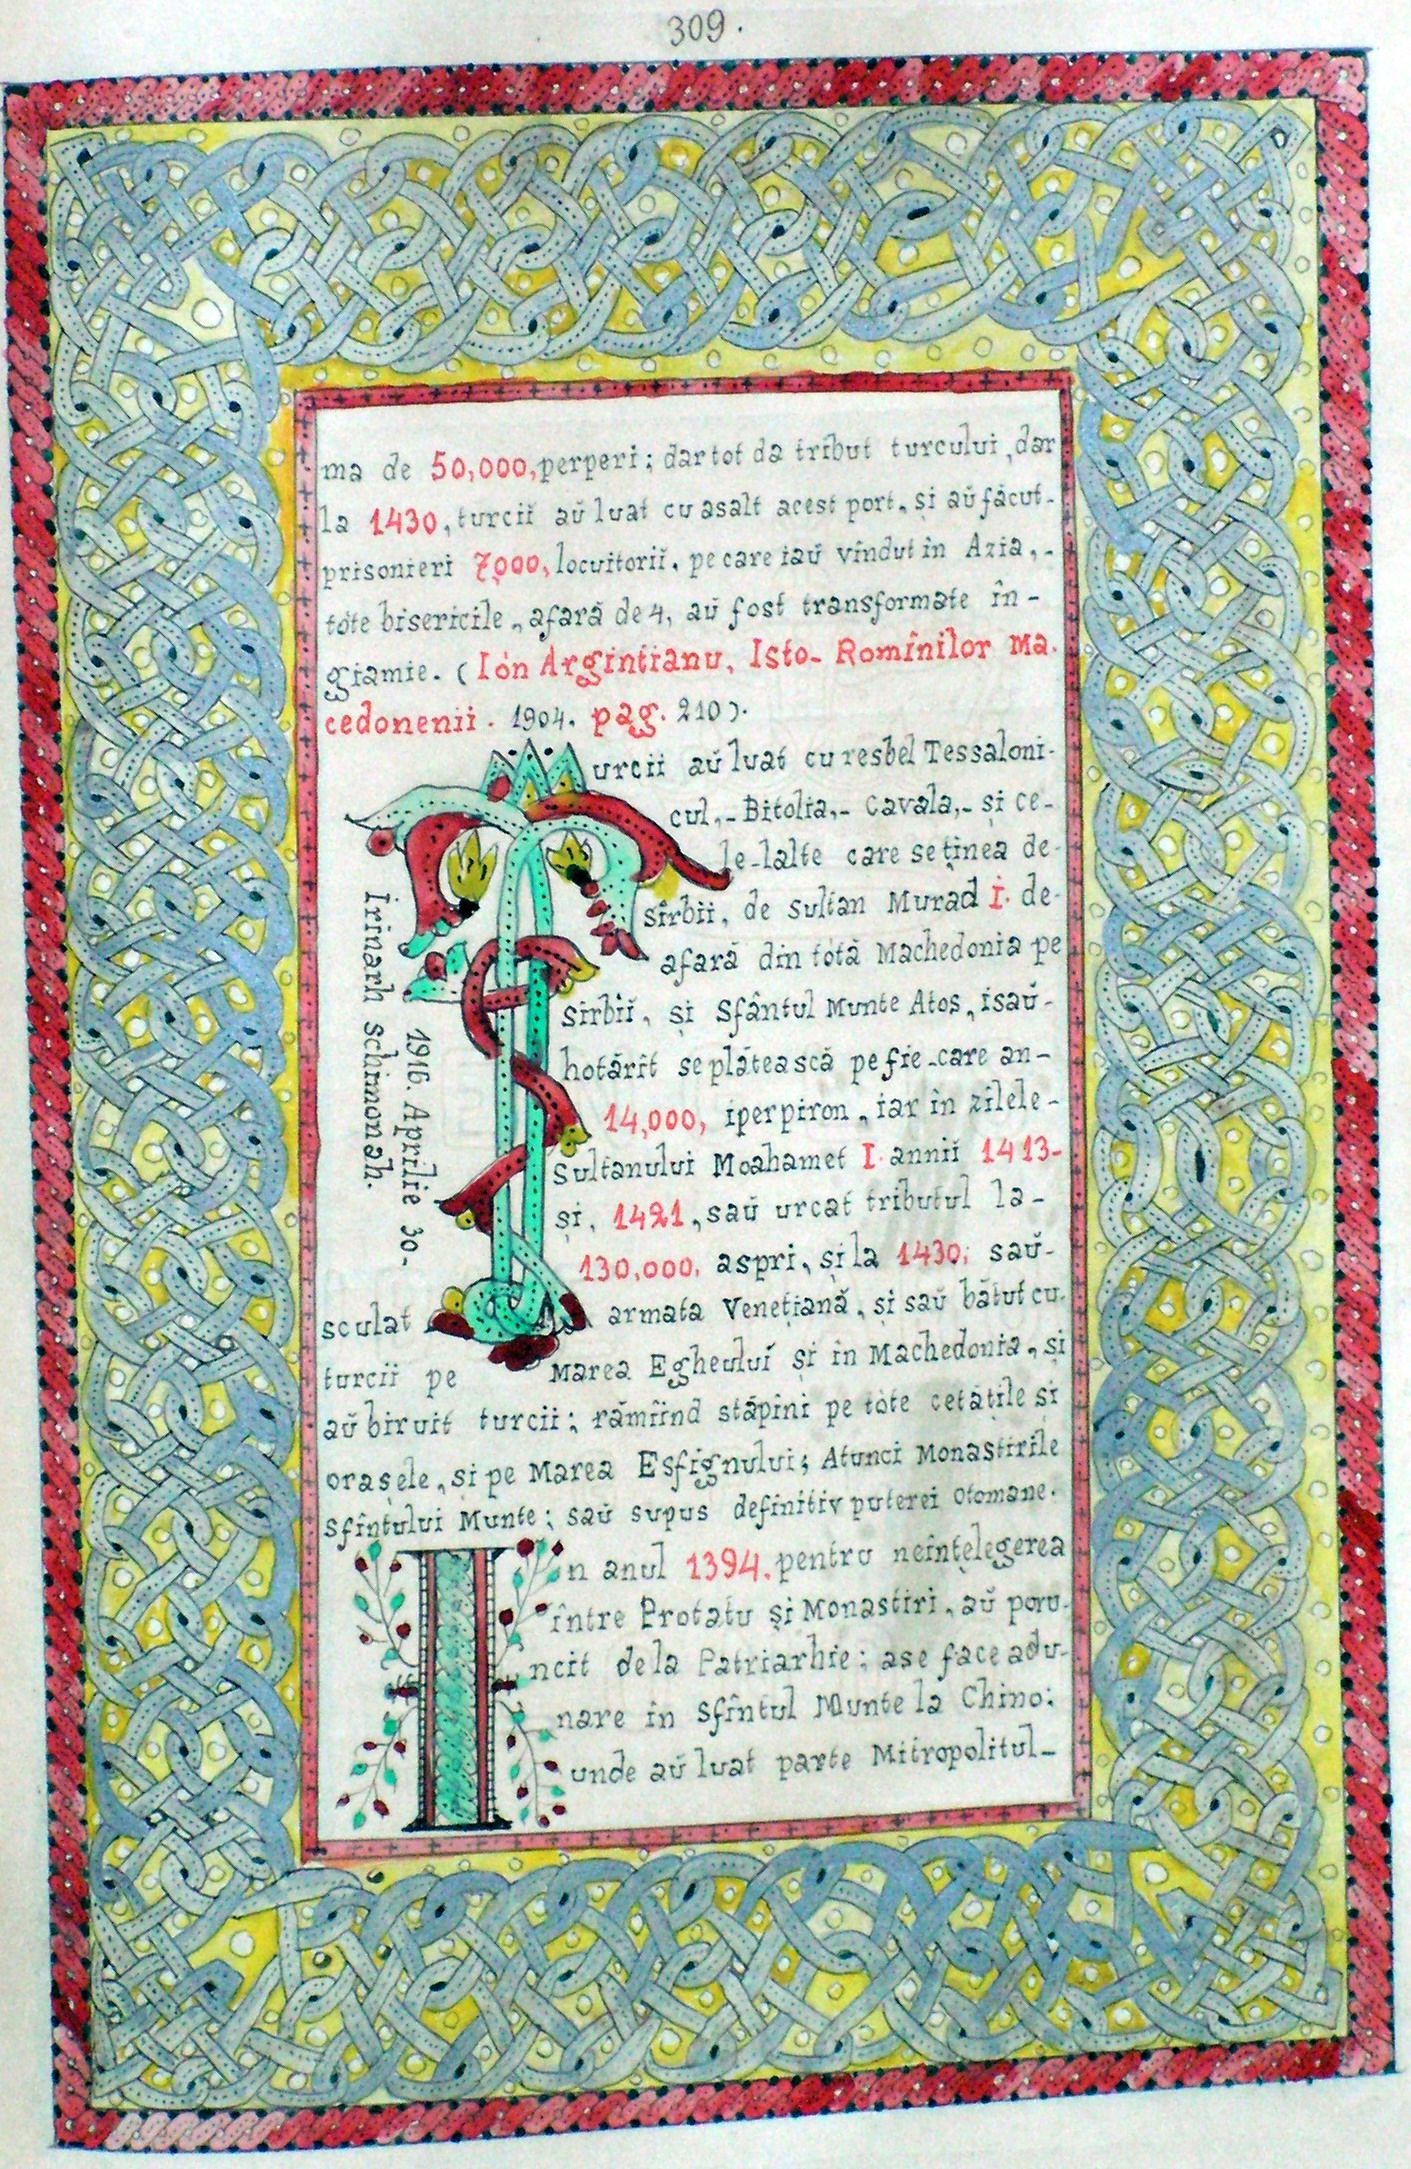 309.
ma de 50,000, perperi; dar tot da tribut turcului, dar
la 1430, turcii aŭ luat cu asalt acest port, și aŭ făcut-
prisonieri 7000, locuitorii, pe care iaŭ vîndut in Azia,-
tóte bisericile, afară de 4, aŭ fost transformate în-
giamie. (Ión Argintianu, Isto- Romînilor Ma.
cedonenii. 1904. pag. 210).
Turcii aŭ luat cu resbel Tessaloni-
cul,- Bitolia,- Cavala,- și ce-
le-lalte care se ținea de-
sîrbii, de sultan Murad I. de-
afară din totă Machedonia pe
sirbiĭ, și Sfântul Munte Atos, isaŭ-
hotărît se plătească pe fie-care an-
14,000, iperpiron, iar în zilele-
Sultanului Moahamet I. anniĭ 1413-
și, 1421, saŭ urcat tributul la-
130,000, aspri, și la 1430, saŭ-
sculat armata Venețiană, și saŭ bătut cu.
turcii pe Marea Egheuluĭ și în Machedonia, și
aŭ biruit turcii; rămîind stăpîni pe tóte cetățile și
orașele, si pe Marea Esfignului; Atunci Monastirile
Sfîntului Munte; saŭ supus definitiv puterei Otomane.
Irinarh schimonah.
1916. Aprilie 30.
In anul 1394, pentru neînțelegerea
între Protatu și Monastiri, aŭ poru-
ncit dela Patriarhie; ase face adu-
nare în Sfîntul Munte la Chino:
unde aŭ luat parte Mitropolitul-